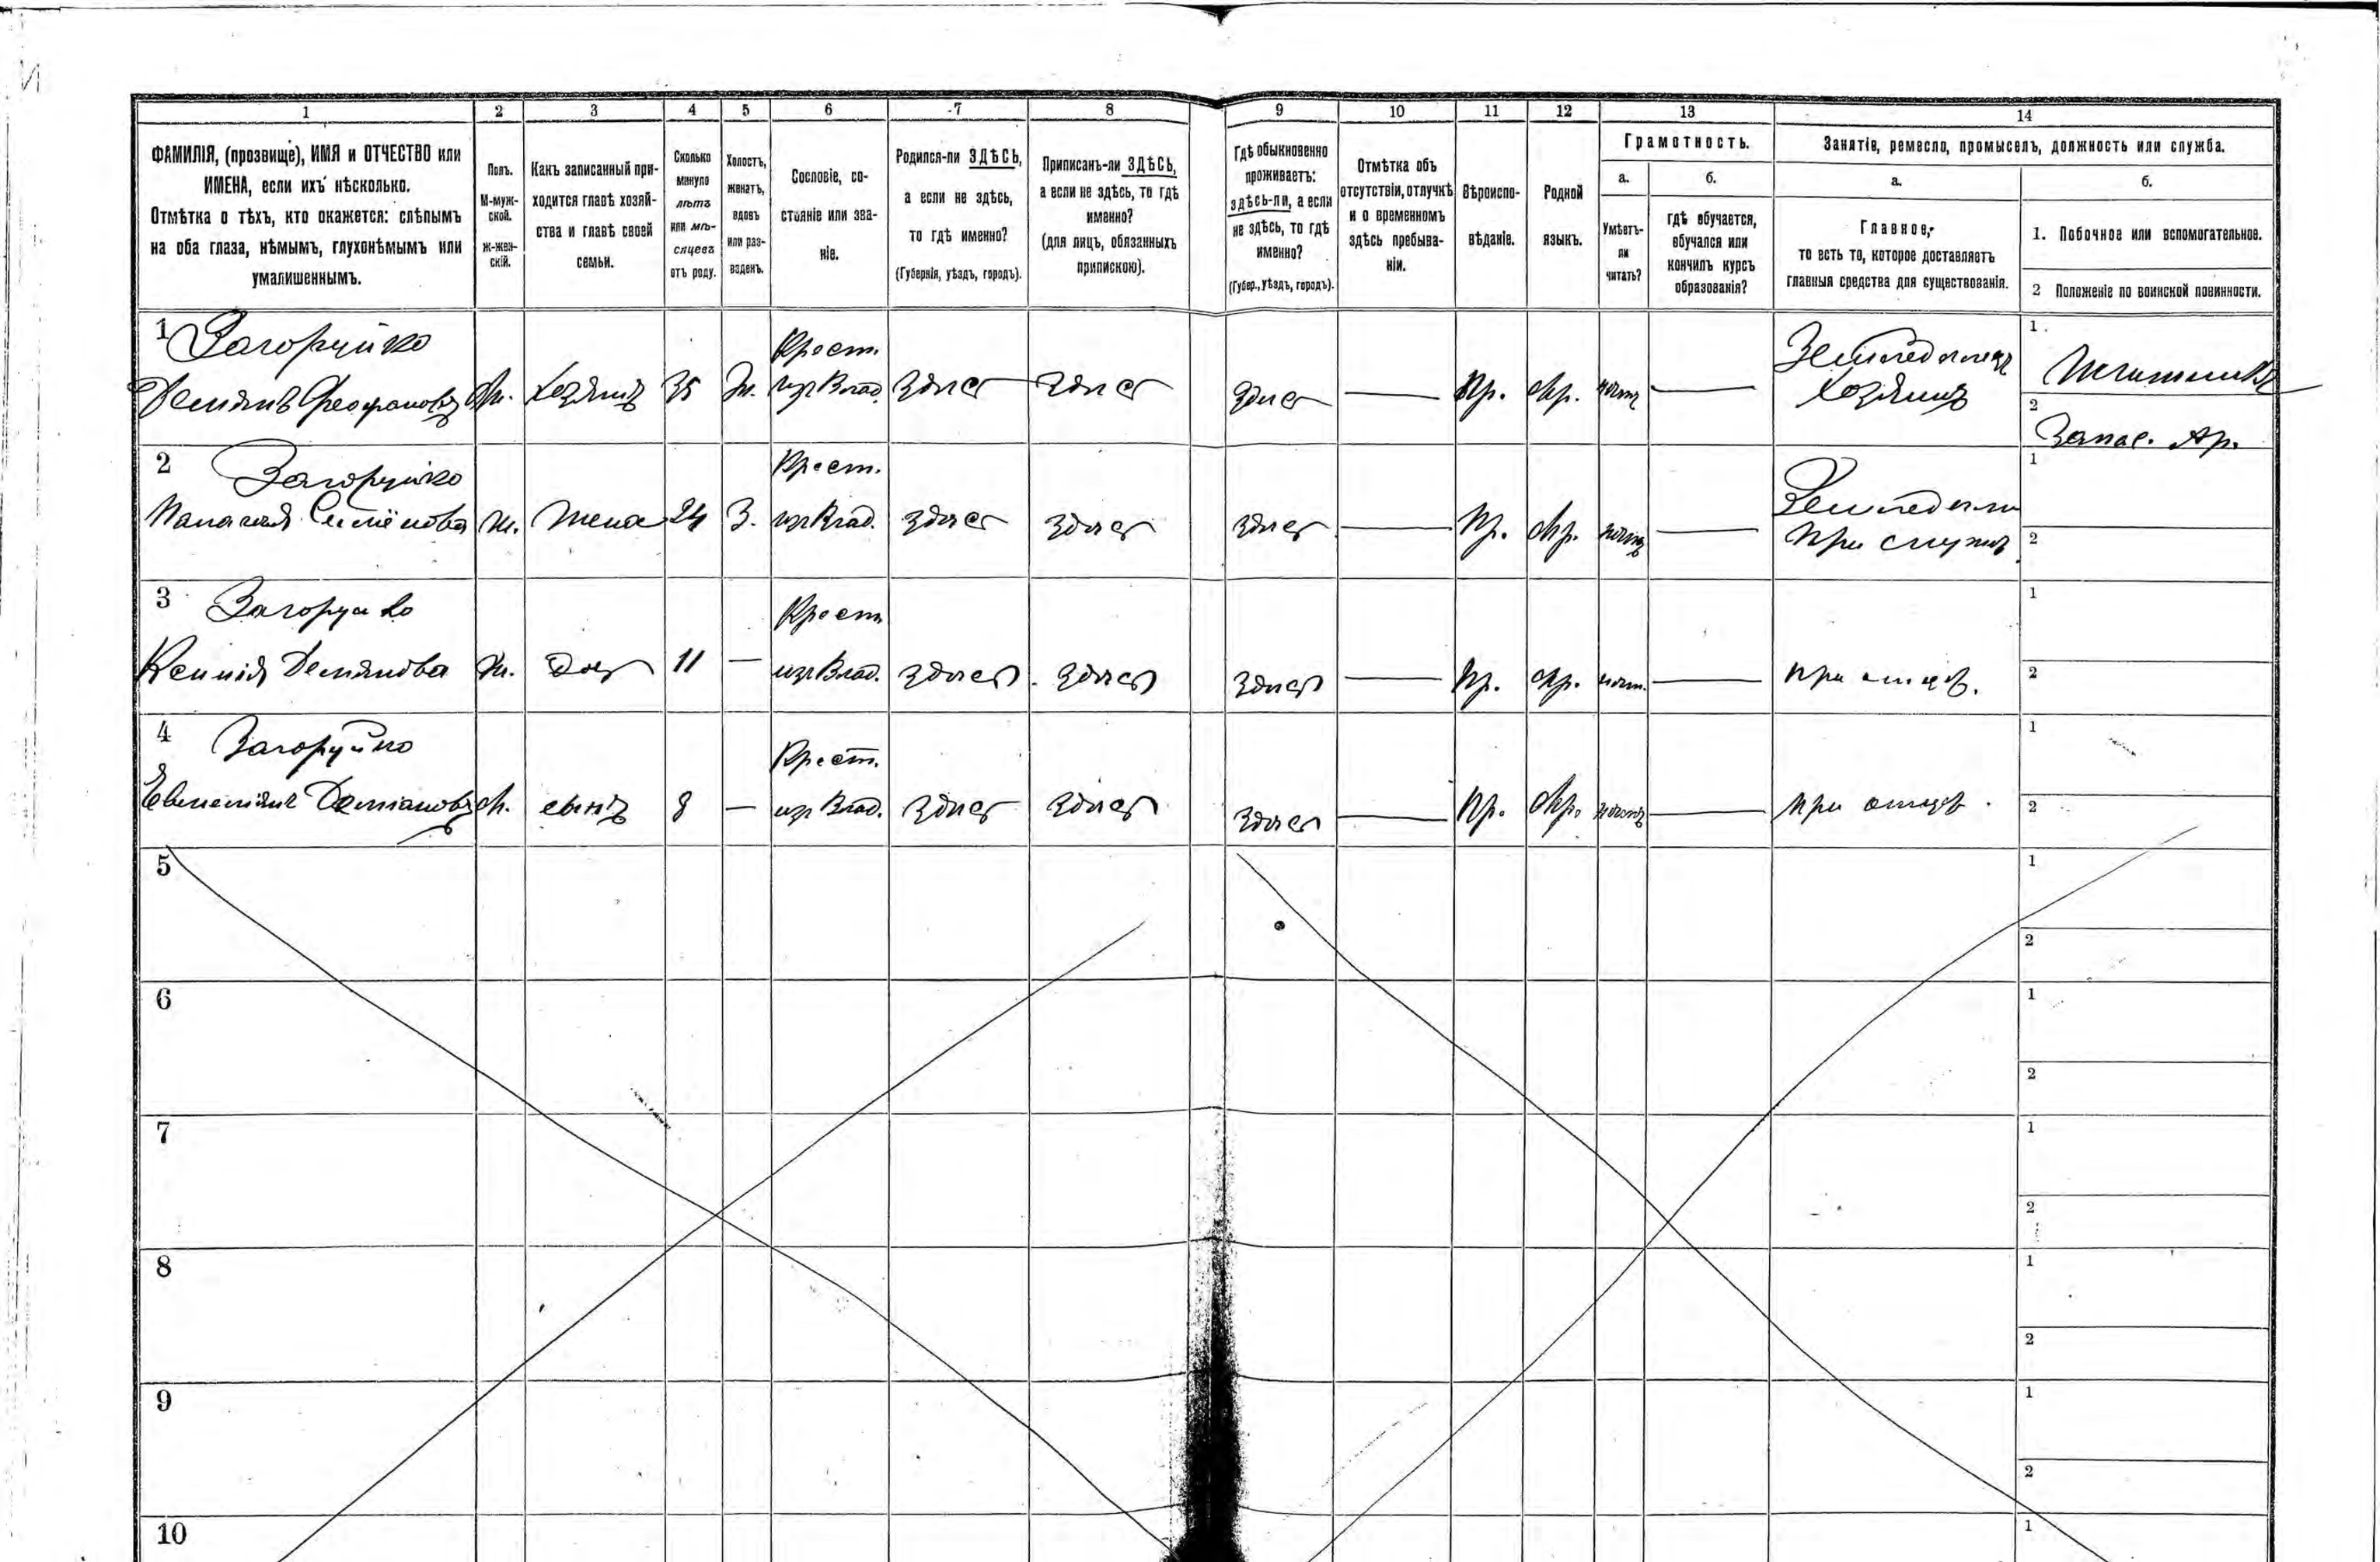 1 2 3 4 5 6 7 8 9 10 11 12 13 14
ФАМИЛІЯ, (прозвище), ИМЯ и ОТЧЕСТВО или
ИМЕНА, если ихъ нѣсколько.
Отмѣтка о тѣхъ, кто окажется: слѣпымъ
на оба глаза, нѣмымъ, глухонѣмымъ или
умалишеннымъ.
Полъ.
М-муж-
ской.
Ж-жен-
скій.
Какъ записанный при-
ходится главѣ хозяй-
ства и главѣ своей
семьи.
Сколько
минуло
лѣтъ
или мѣ-
сяцевъ
отъ роду.
Холостъ,
женатъ,
вдовъ
или раз-
веденъ.
Сословіе, со-
стояніе или зва-
ніе.
Родился-ли ЗДѢСЬ,
а если не здѣсь,
то гдѣ именно?
(Губернія, уѣздъ, городъ).
Приписанъ-ли ЗДѢСЬ,
а если не здѣсь, то гдѣ
именно?
(для лицъ, обязанныхъ
припискою).
Гдѣ обыкновенно
проживаетъ:
здѣсь-ли, а если
не здѣсь, то гдѣ
именно?
(Губер., уѣздъ, городъ).
Отмѣтка объ
отсутствіи, отлучкѣ
и о временномъ
здѣсь пребыва-
ніи.
Вѣроиспо-
вѣданіе.
Родной
языкъ.
Грамотность.
а.
Умѣетъ-
ли
читать?
б.
гдѣ обучается,
обучался или
кончилъ курсъ
образованія?
Занятіе, ремесло, промыселъ, должность или служба.
а.
Главное,
то есть то, которое доставляетъ
главныя средства для существованія.
б.
1. Побочное или вспомогательное.
2 Положеніе по воинской повинности.
1 Загоруйко Крест. Земледѣлецъ 1
Демянъ Феофановъ М. Хозяинъ 35 Ж. изъ Влад. Здѣсь Здѣсь Здѣсь — Пр. нѣтъ — Хозяинъ
2 Запас. Ар.
2 Загоруйко Крест. 1
Семёнова ж. Жена 24 З. изъ Влад. здѣсь здѣсь здѣсь — Пр. нѣтъ — при 2
3 Загоруйко Крест 1
Ксенія Демянова ж. Доч 11 — изъ Влад. здѣсь здѣсь здѣсь — Пр. нѣт. — при отцѣ. 2
4 Загоруйко Крест. 1
Демiановъ М. сынъ 8 — изъ Влад. здѣсь здѣсь здѣсь — Пр. нѣтъ — при отцѣ. 2
5 1
2
6 1
2
7 1
2
8 1
2
9 1
2
10 1